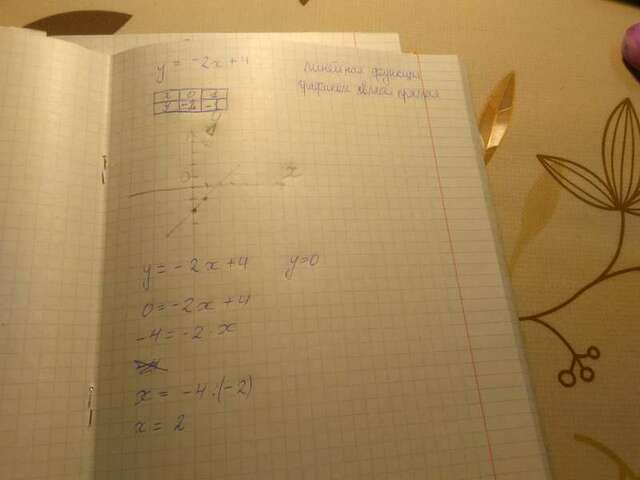 y = -2x+4
линейная функция
графиком является прямая
x 0 1
y -2 -1
y
0
x
y = -2x+4 y=0
0=-2x+4
-4=-2·x
x = -4:(-2)
x = 2